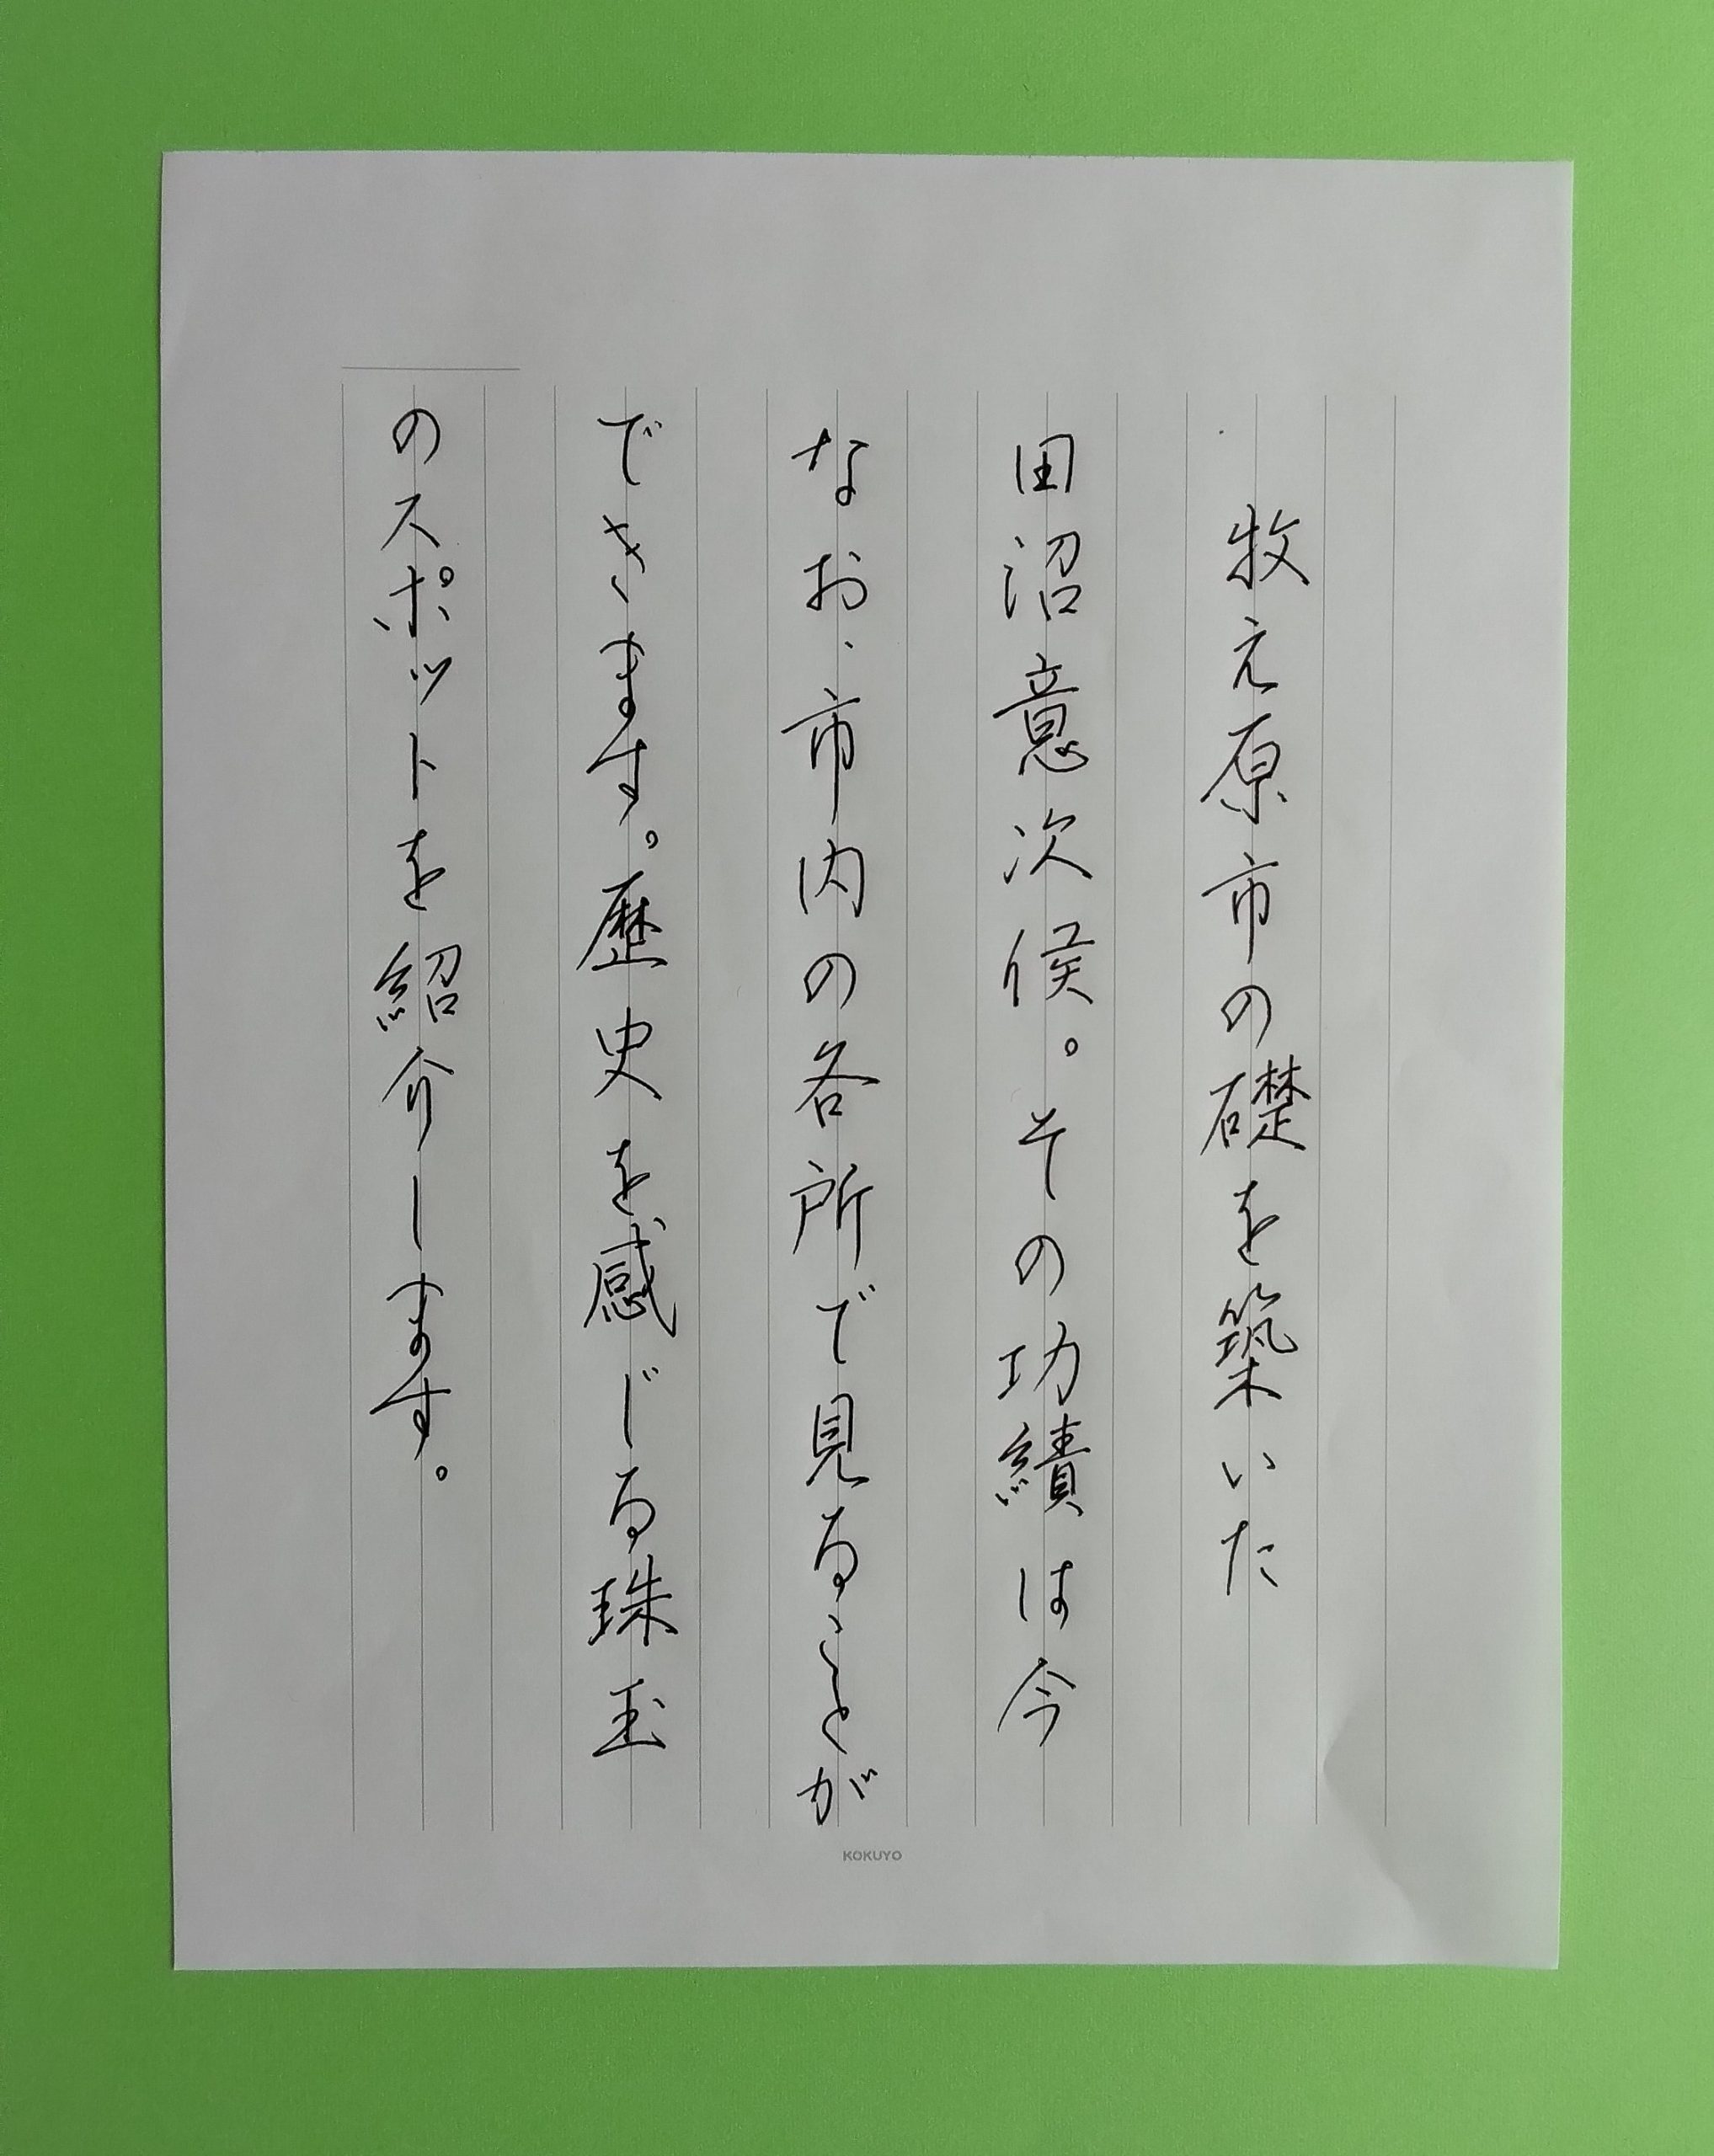 牧之原市の礎を築いた
田沼意次侯。その功績は今
なお、市内の各所で見ることが
できます。歴史を感じる珠玉
のスポットを紹介します。
KOKUYO